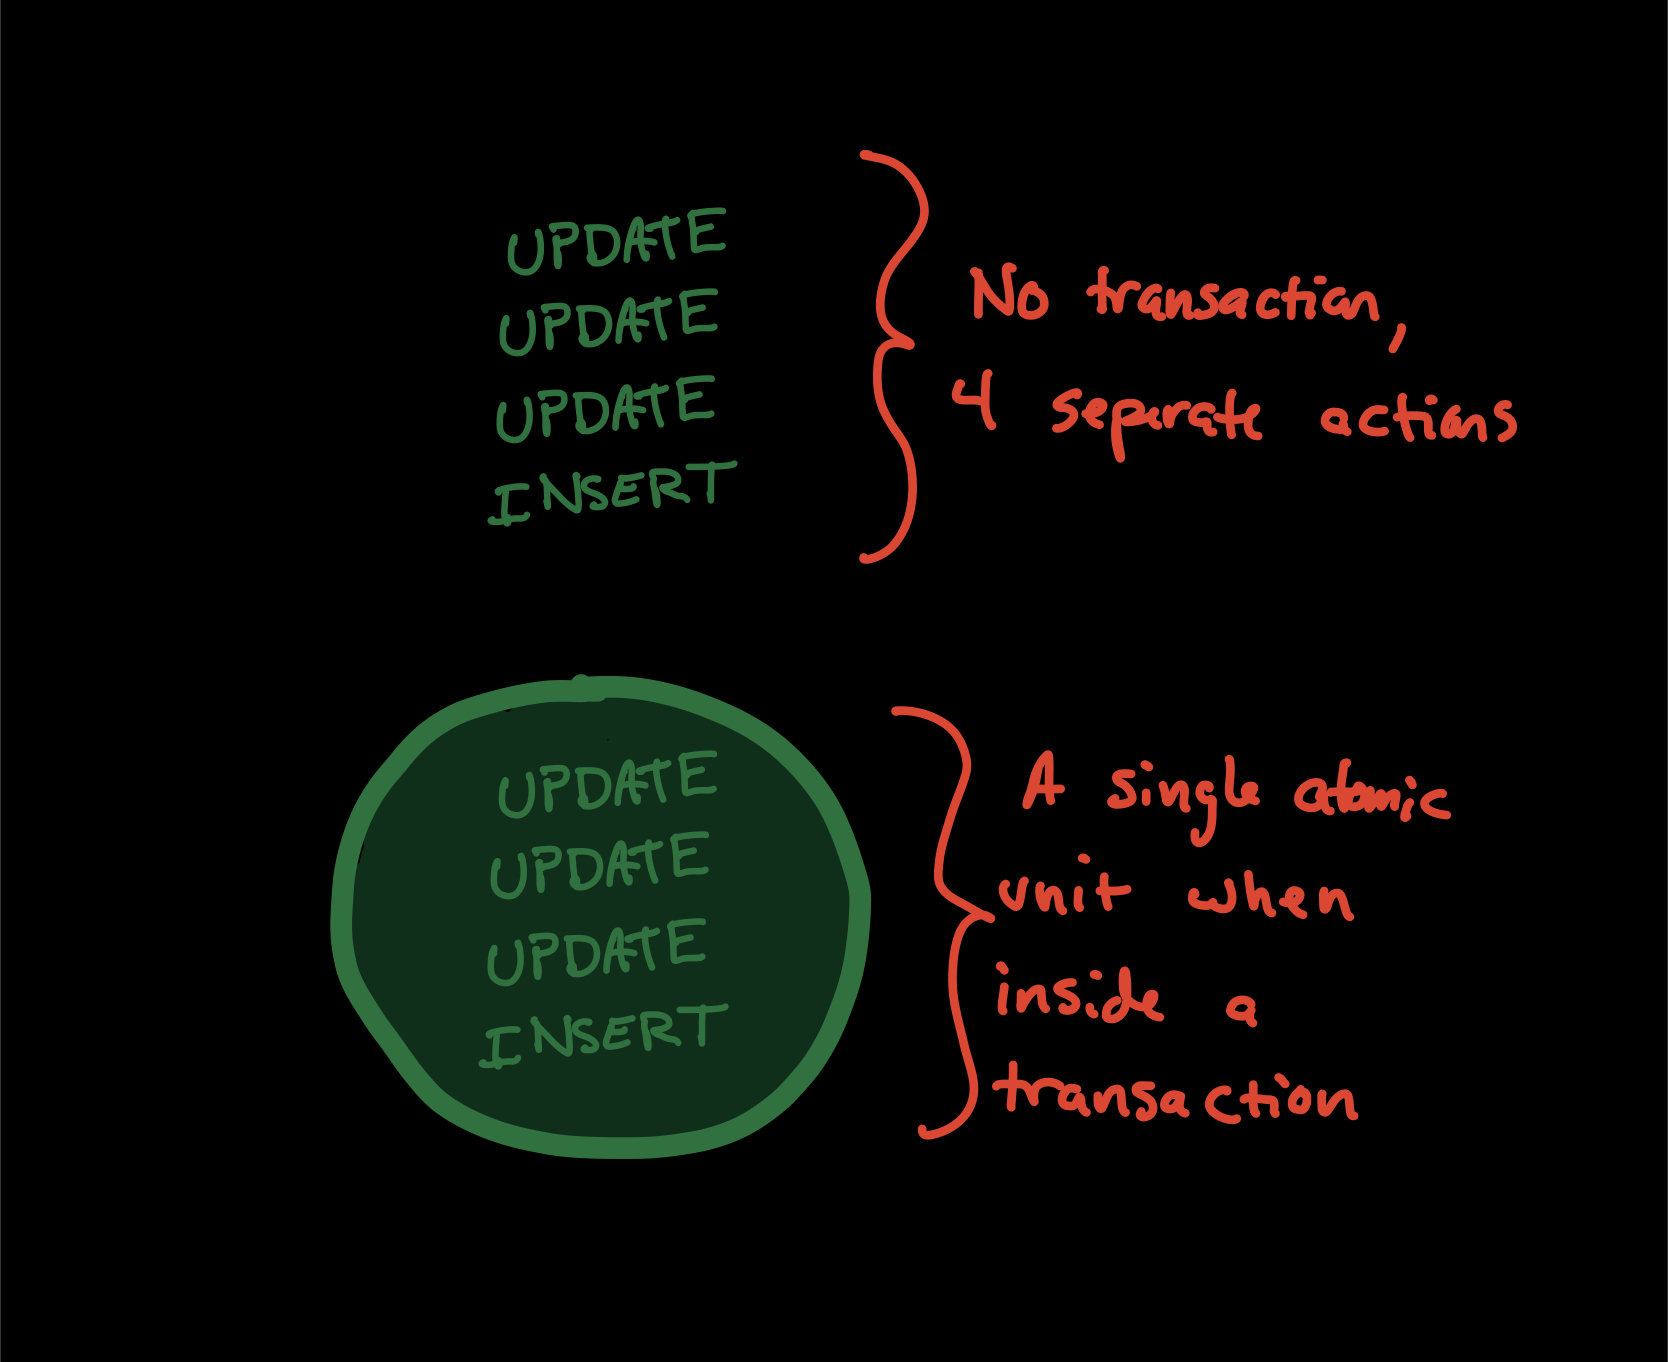 UPDATE
UPDATE
UPDATE
INSERT
No transaction,
4 separate actions
UPDATE
UPDATE
UPDATE
INSERT
A single atomic
unit when
inside a
transaction